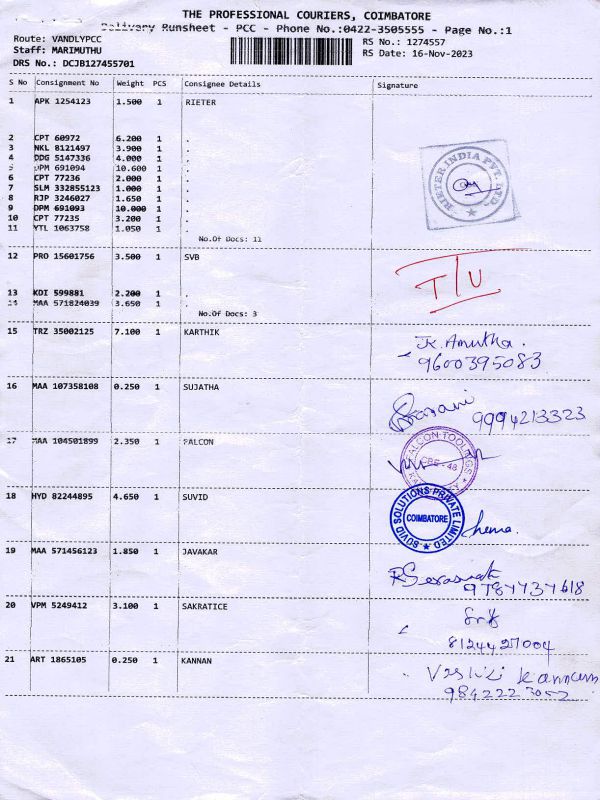 THE PROFESSIONAL COURIERS, COIMBATORE
Delivery Runsheet - PCC - Phone No.:0422-3505555 - Page No.:1
Route: VANDLYPCC
RS No.: 1274557
Staff: MARIMUTHU
RS Date: 16-Nov-2023
DRS No.: DCJB127455701
S No Consignment No Weight PCS Consignee Details Signature
1 APK 1254123 1.500 1 RIETER
2 CPT 60972 6.200 1 .
3 NKL 8121497 3.900 1 .
4 DDG 5147336 4.000 1 .
5 DPM 691094 10.600 1 .
6 CPT 77236 2.000 1 .
7 SLM 332855123 1.000 1 .
8 RJP 3246027 1.650 1 .
9 DPM 691093 10.000 1 .
10 CPT 77235 3.200 1 .
11 YTL 1063758 1.050 1 .
No.Of Docs: 11
RIETER INDIA PVT. LTD.
12 PRO 15601756 3.500 1 SVB
T/U
13 KDI 599881 2.200 1 .
14 MAA 571824039 3.650 1 .
No.Of Docs: 3
15 TRZ 35002125 7.100 1 KARTHIK
K. Amutha.
9600395083
16 MAA 107358108 0.250 1 SUJATHA
9994213323
17 MAA 104501899 2.350 1 FALCON
FALCON TOOLINGS
CBE - 48
18 HYD 82244895 4.650 1 SUVID
SOVID SOLUTIONS PRIVATE LIMITED
COIMBATORE
Hema.
19 MAA 571456123 1.850 1 JAVAKAR
9787737618
20 VPM 5249412 3.100 1 SAKRATICE
8124427004
21 ART 1865105 0.250 1 KANNAN
Kannan